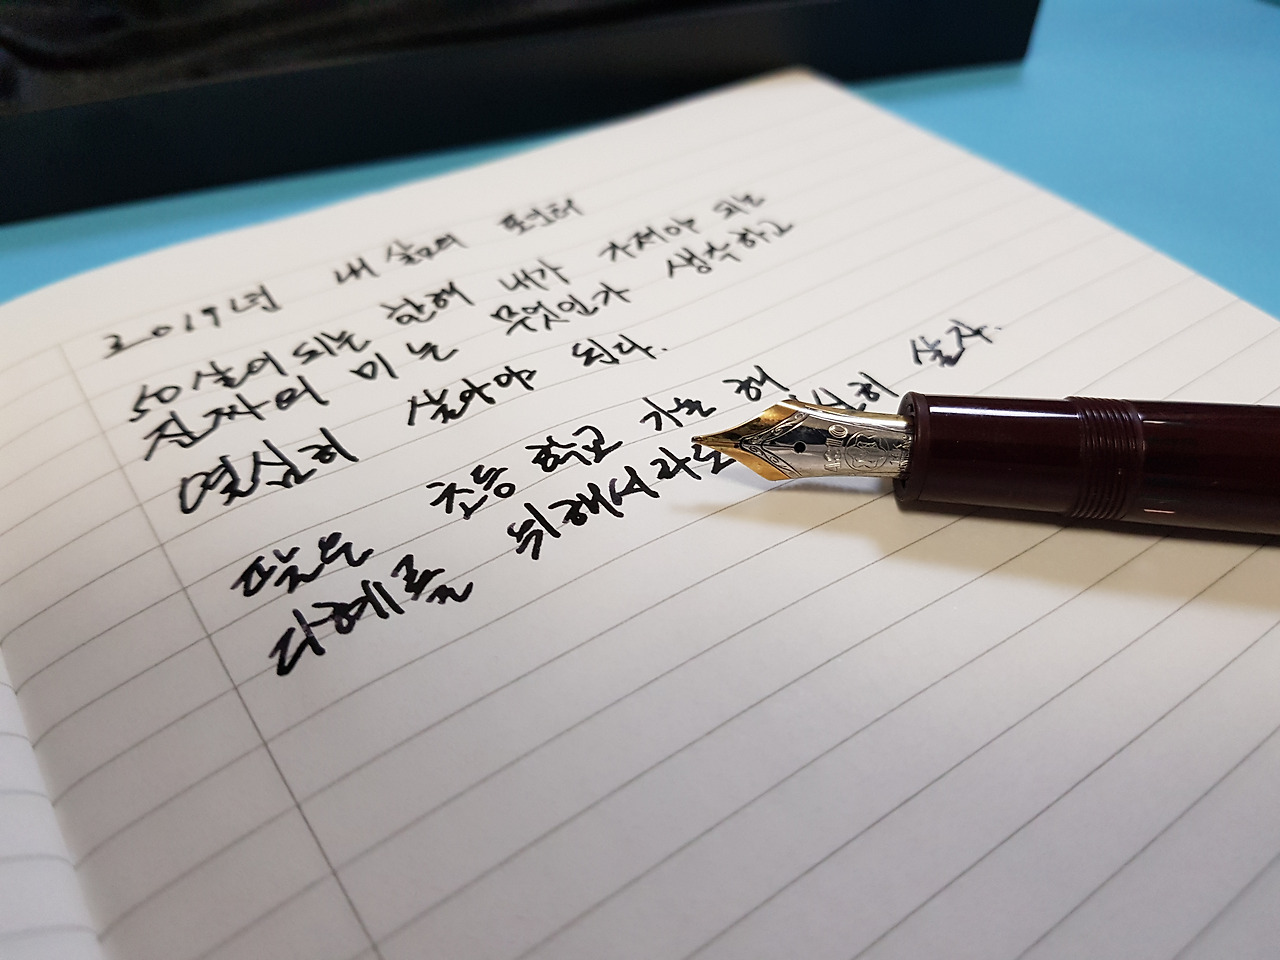 2019년 내 삶의
50살이 되는 한해 내가 가져야 되는
진짜의미는 무엇인가 생각하고
열심히 살아야 된다.
딸은 초등학교 가는 해
다혜를 위해서라도 살자.